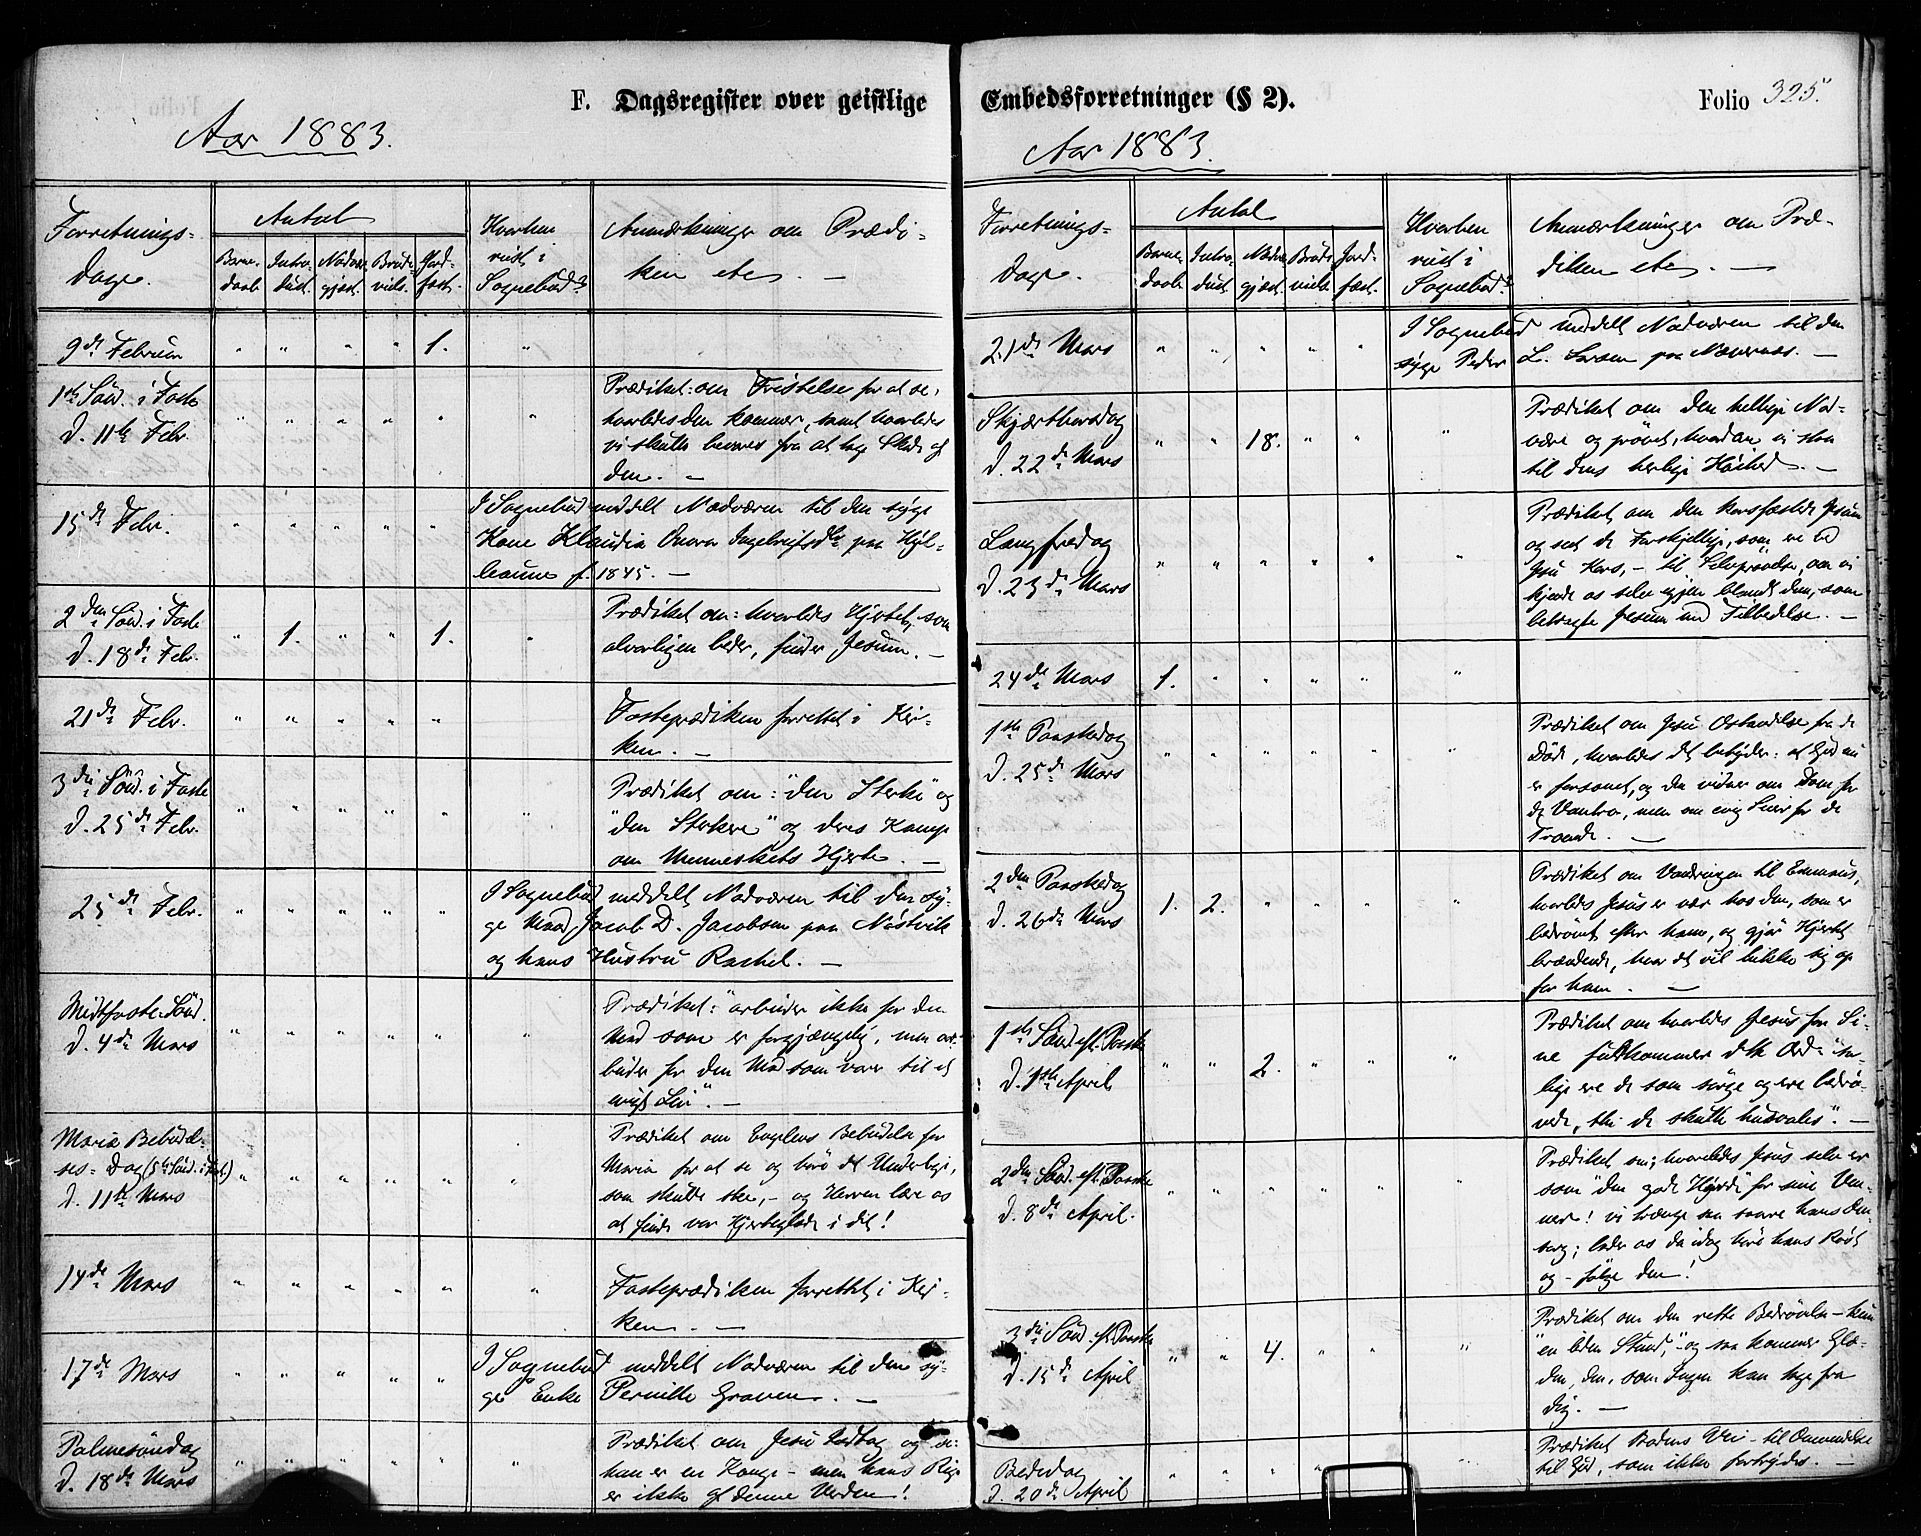 F. Dagsregister over geistlige
Aar 1883.
Forretnings-
Dage.
Antal
Barne-
daab.
Intro-
duct.
Nadver-
gjæst.
Brude-
vielse.
Jord-
fæst.
Hvorhen
reist i
Sognebud?
Anmærkninger om Prædi-
ken etc. —
9de Februar " " " " 1. "
1ste Sönd. i Faste
D. 11te Febr. " " " " " "
Prædiket: om Fristelser for at se,
hvorledes den kommer, samt hvorledes
vi skulle bevares fra at tage Skade af
den. —
15de Febr. " " " " "
I Sognebud meddelt Nadveren til den syge
Kone Klaudia
f. 1845. —
2den Sönd. i Faste
D. 18de Febr. " 1. " " 1. "
Prædiket om: hvorledes Hjertet, som
alvorligen beder, finder Jesum. —
21de Febr. " " " " "
Fasteprædiken forrettet i Kir-
ken. —
3die Sönd. i Faste
D. 25de Febr. " " " " " "
Prædiket om: "den Sterke" og
"den Sterkere" og deres Kamp
om Menneskets Hjerte. —
25de Febr. " " " " "
I Sognebud meddelt Nadveren til den sy-
ge Mand, Jacob D. Jacobsen paa Nöstvik
og hans Hustru Rachel. —
Midtfaste-Sönd.
D. 4de Mars " " " " " "
Prædiket: "arbeider ikke for den
Mad som er forgjængelig, men ar-
beider for den Mad som varer til et
evigt Liv". —
Maria Bebudel-
ses-Dag (5te Sönd. i Fast.)
D. 11te Mars " " " " " "
Prædiket om Englens Bebudelse for
Maria for at se og höre det Underlige,
som skulde ske, — og Herren lære os
at finde vor Hjerteglæde i dit!
14de Mars " " " " " "
Fasteprædiken forrettet i Kir-
ken. —
17de Mars " " " " "
I Sognebud meddelt Nadveren til den sy-
ge Enke Pernille Graven. —
Palmesöndag
D. 18de Mars " " " " " "
Prædiket om Jesu Indtog og se:
han er en Konge — men hans Rige
er ikke af denne Verden!
Embedsforretninger (§ 2).
Folio 325.
Aar 1883.
Forretnings-
Dage.
Antal
Barne-
daab.
Intro-
duct.
Nadver-
gjæst.
Brude-
vielse.
Jord-
fæst.
Hvorhen
reist i
Sognebud?
Anmærkninger om Præ-
diken etc. —
21de Mars " " " " "
I Sognebud meddelt Nadveren til den
syge Peder L. Larsen paa Nævernæs. —
Skjærthorsdag
D. 22de Mars " " 18. " " "
Prædiket om den hellige Nad-
vere og prövet, hvordan vi staa
til dens herlige Höihed. —
Langfredag
D. 23de Mars " " " " " "
Prædiket om den korsfæstede Jesum
og set de Forskjellige, som ere ved
Jesu Kors, — til Selvprövelse, om vi
kjende os selv igjen blandt dem, som
betragte Jesum med Tilbedelse. —
24de Mars 1. " " " " "
1ste Paaskedag
D. 25de Mars " " " " " "
Prædiket om Jesu Opstandelse fra de
Döde, hvorledes det betyder: at Gud nu
er forsonet, og den vidner om Dom for
de Vantro, men om evig Liv for de
Troende. —
2den Paaskedag
D. 26de Mars 1. 2. " " " "
Prædiket om Vandringen til Emmaus,
hvorledes Jesus er nær hos den, som er
bedrövet efter ham, og gjör Hjertet
brændende, hvor det vil lukke sig op
for ham. —
1ste Sönd. eft. Paaske
D. 1ste April " " 2. " " "
Prædiket om hvorledes Jesus for Si-
ne fuldkommer dette Ord: "sa-
lige ere de som sörge og ere bedrö-
vede, thi de skulle husvales". —
2den Sönd. eft. Paaske
D. 8de April. " " " " " "
Prædiket om; hvorledes Jesus selv er
som "den gode Hyrde" for sine Ven-
ner! vi trænge saa saare hans Om-
sorg; lader os da idag höre hans Röst
og — fölge den!
3die Sönd. eft. Paaske
D. 15de April " " 4. " " "
Prædiket om den rette Bedrövelse — kun
"en liden Stund," — og saa kommer Glæ-
den, den, som Ingen kan tage fra
dig. —
Bededag
D. 20de April " " " " " "
Prædiket Bodens Vei — til Omvendelse
til Gud, som ikke fortrydes. —